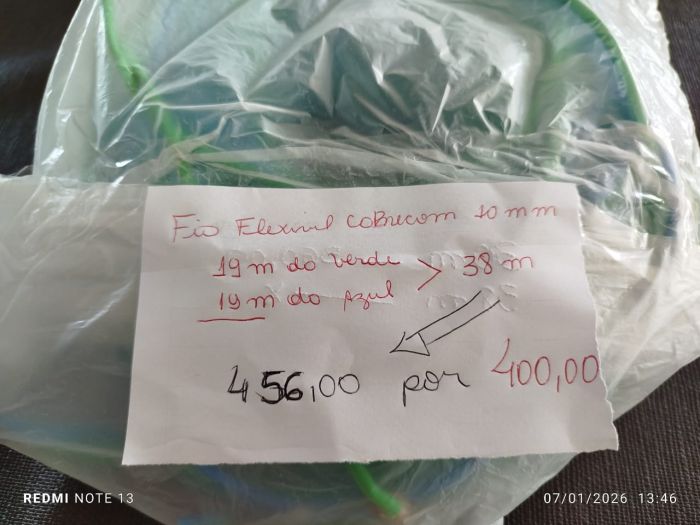 Fio Flexivel cobrecom 10 mm
19 m do verde > 38 m
19 m do Azul
456,00 por 400,00
REDMI NOTE 13
07/01/2026 13:46